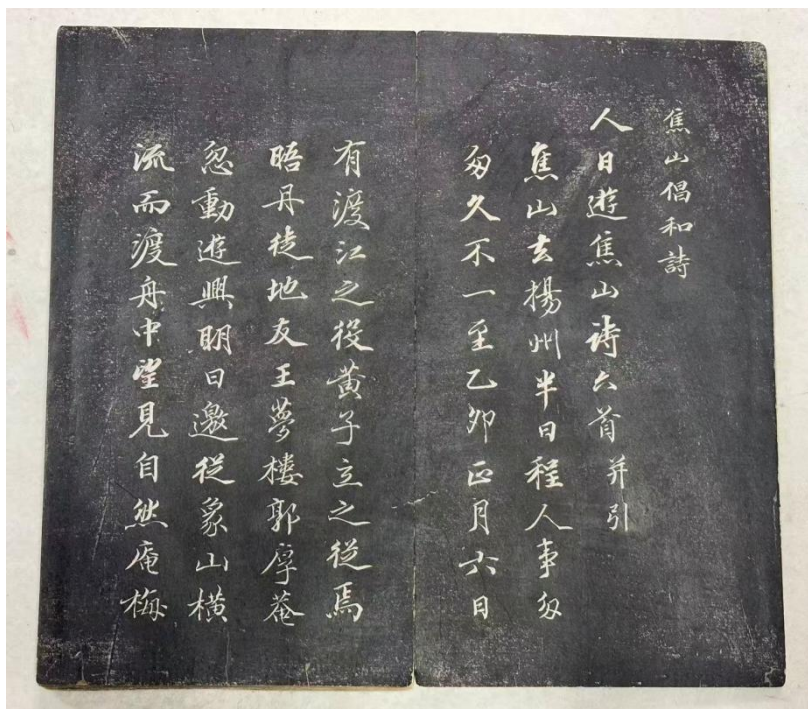 焦山倡和詩
人日遊焦山詩六首并引
焦山去揚州半日程人事匆
匆久不一至乙卯正月六日
有渡江之役黄子立之從焉
晤丹徒地友王夢樓郭厚菴
忽動遊興明日邀從象山橫
流而渡舟中望見自然庵梅